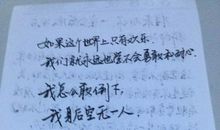 如果这个世界上只有欢乐.
我们就永远也学不会勇敢和耐心.
我怎敢倒下,
我身后空无一人.